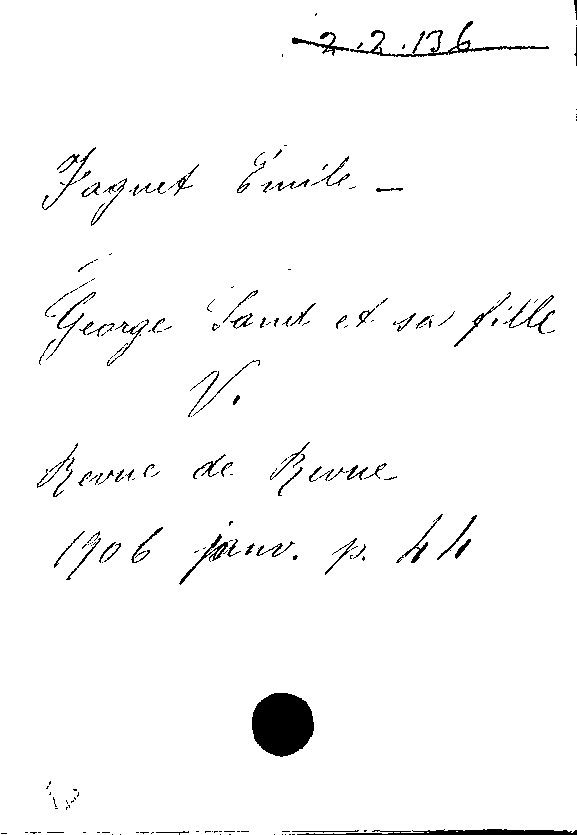 2.2.136
Faguet Émile –
George Sand et sa fille
V.
Revue de Revue
1906 janv. p. 44